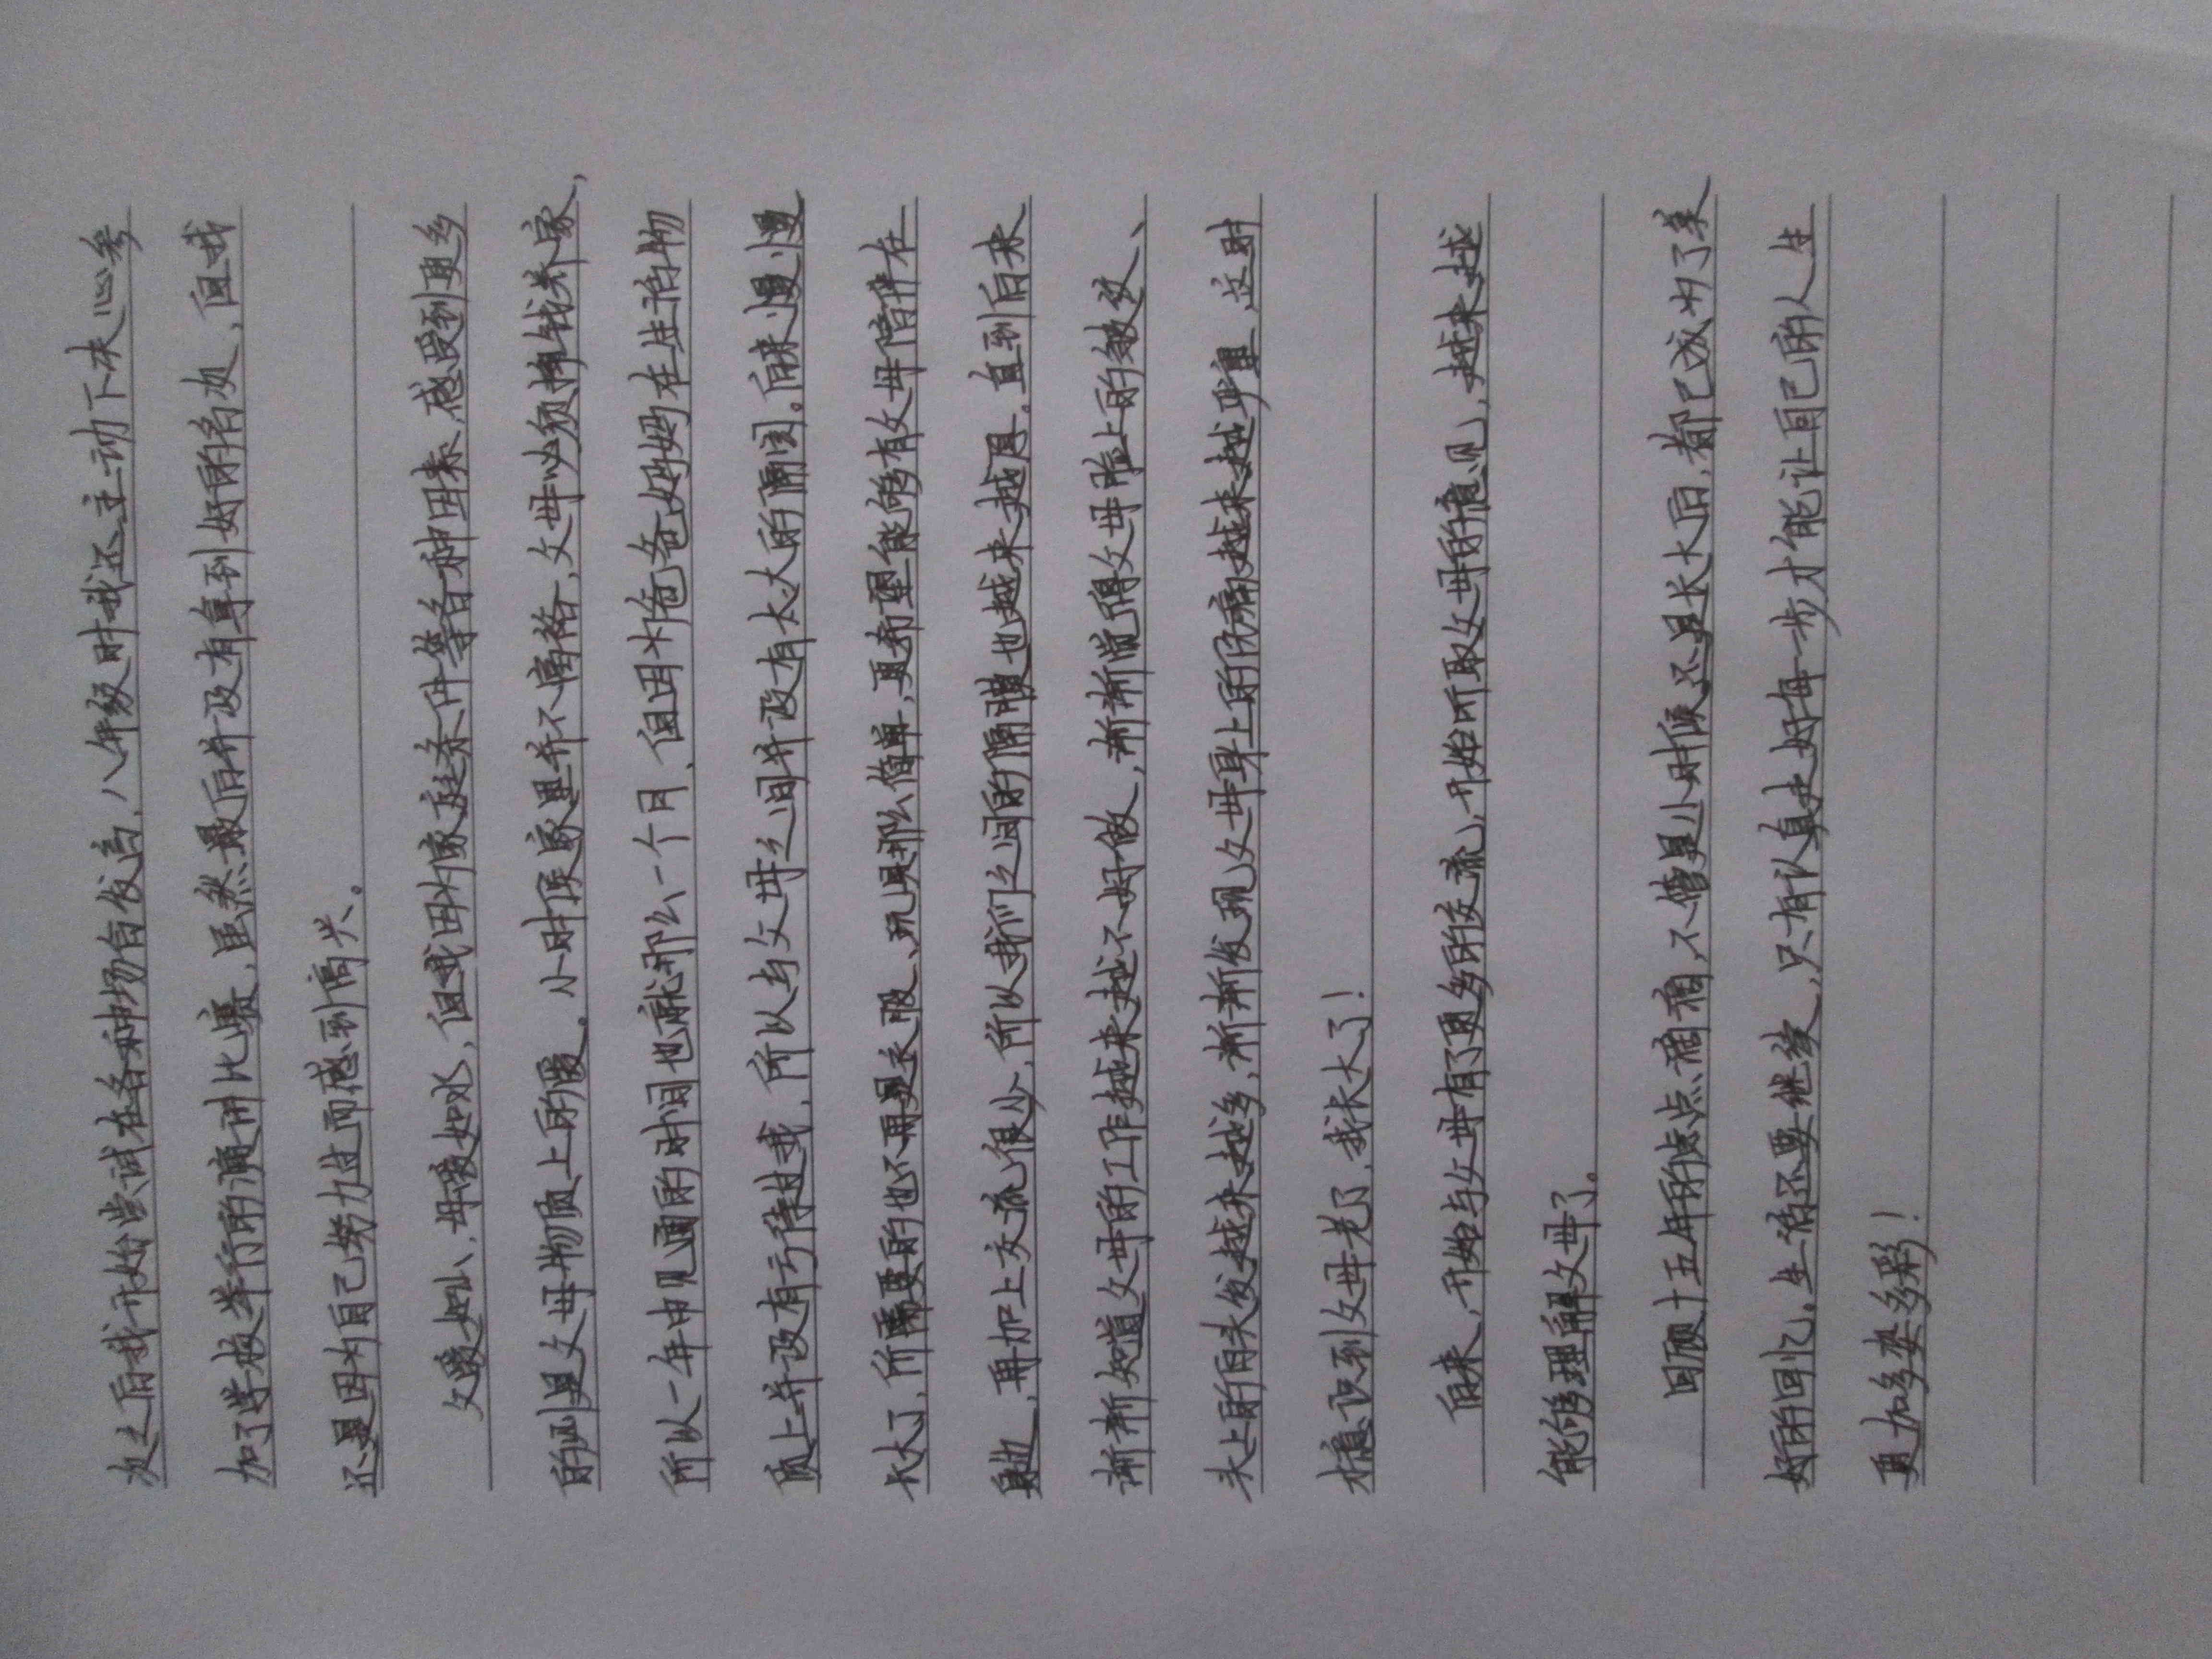 次之后我开始尝试在各种场合发言，八年级时我还主动下决心参
加了学校举行的演讲比赛，虽然最后并没有拿到好的名次，但我
还是因为自己努力过而感到高兴。
父爱如山，母爱如水，但我因为家庭条件等各种因素，感受到更多
的则是父母物质上的爱。小时候家里并不富裕，父母必须挣钱养家，
所以一年中见面的时间也就那么一个月，但因为爸爸妈妈在生活物
质上并没有亏待过我，所以与父母之间并没有太大的隔阂。后来慢慢
长大了，所需要的也不再是衣服、玩具那么简单，更希望能够有父母陪伴在
身边，再加上交流很少，所以我们之间的隔膜也越来越厚，直到后来
渐渐知道父母的工作越来越不好做，渐渐觉得父母脸上的皱纹、
头上的白头发越来越多，渐渐发现父母身上的伤痛越来越严重，这时
才意识到父母老了，我长大了！
后来，开始与父母有了更多的交流，开始听取父母的意见，越来越
能够理解父母了。
回顾十五年的点点滴滴，不管是小时候还是长大后，都已成为了美
好的回忆。生活还要继续，只有认真走好每一步才能让自己的人生
更加多姿多彩！